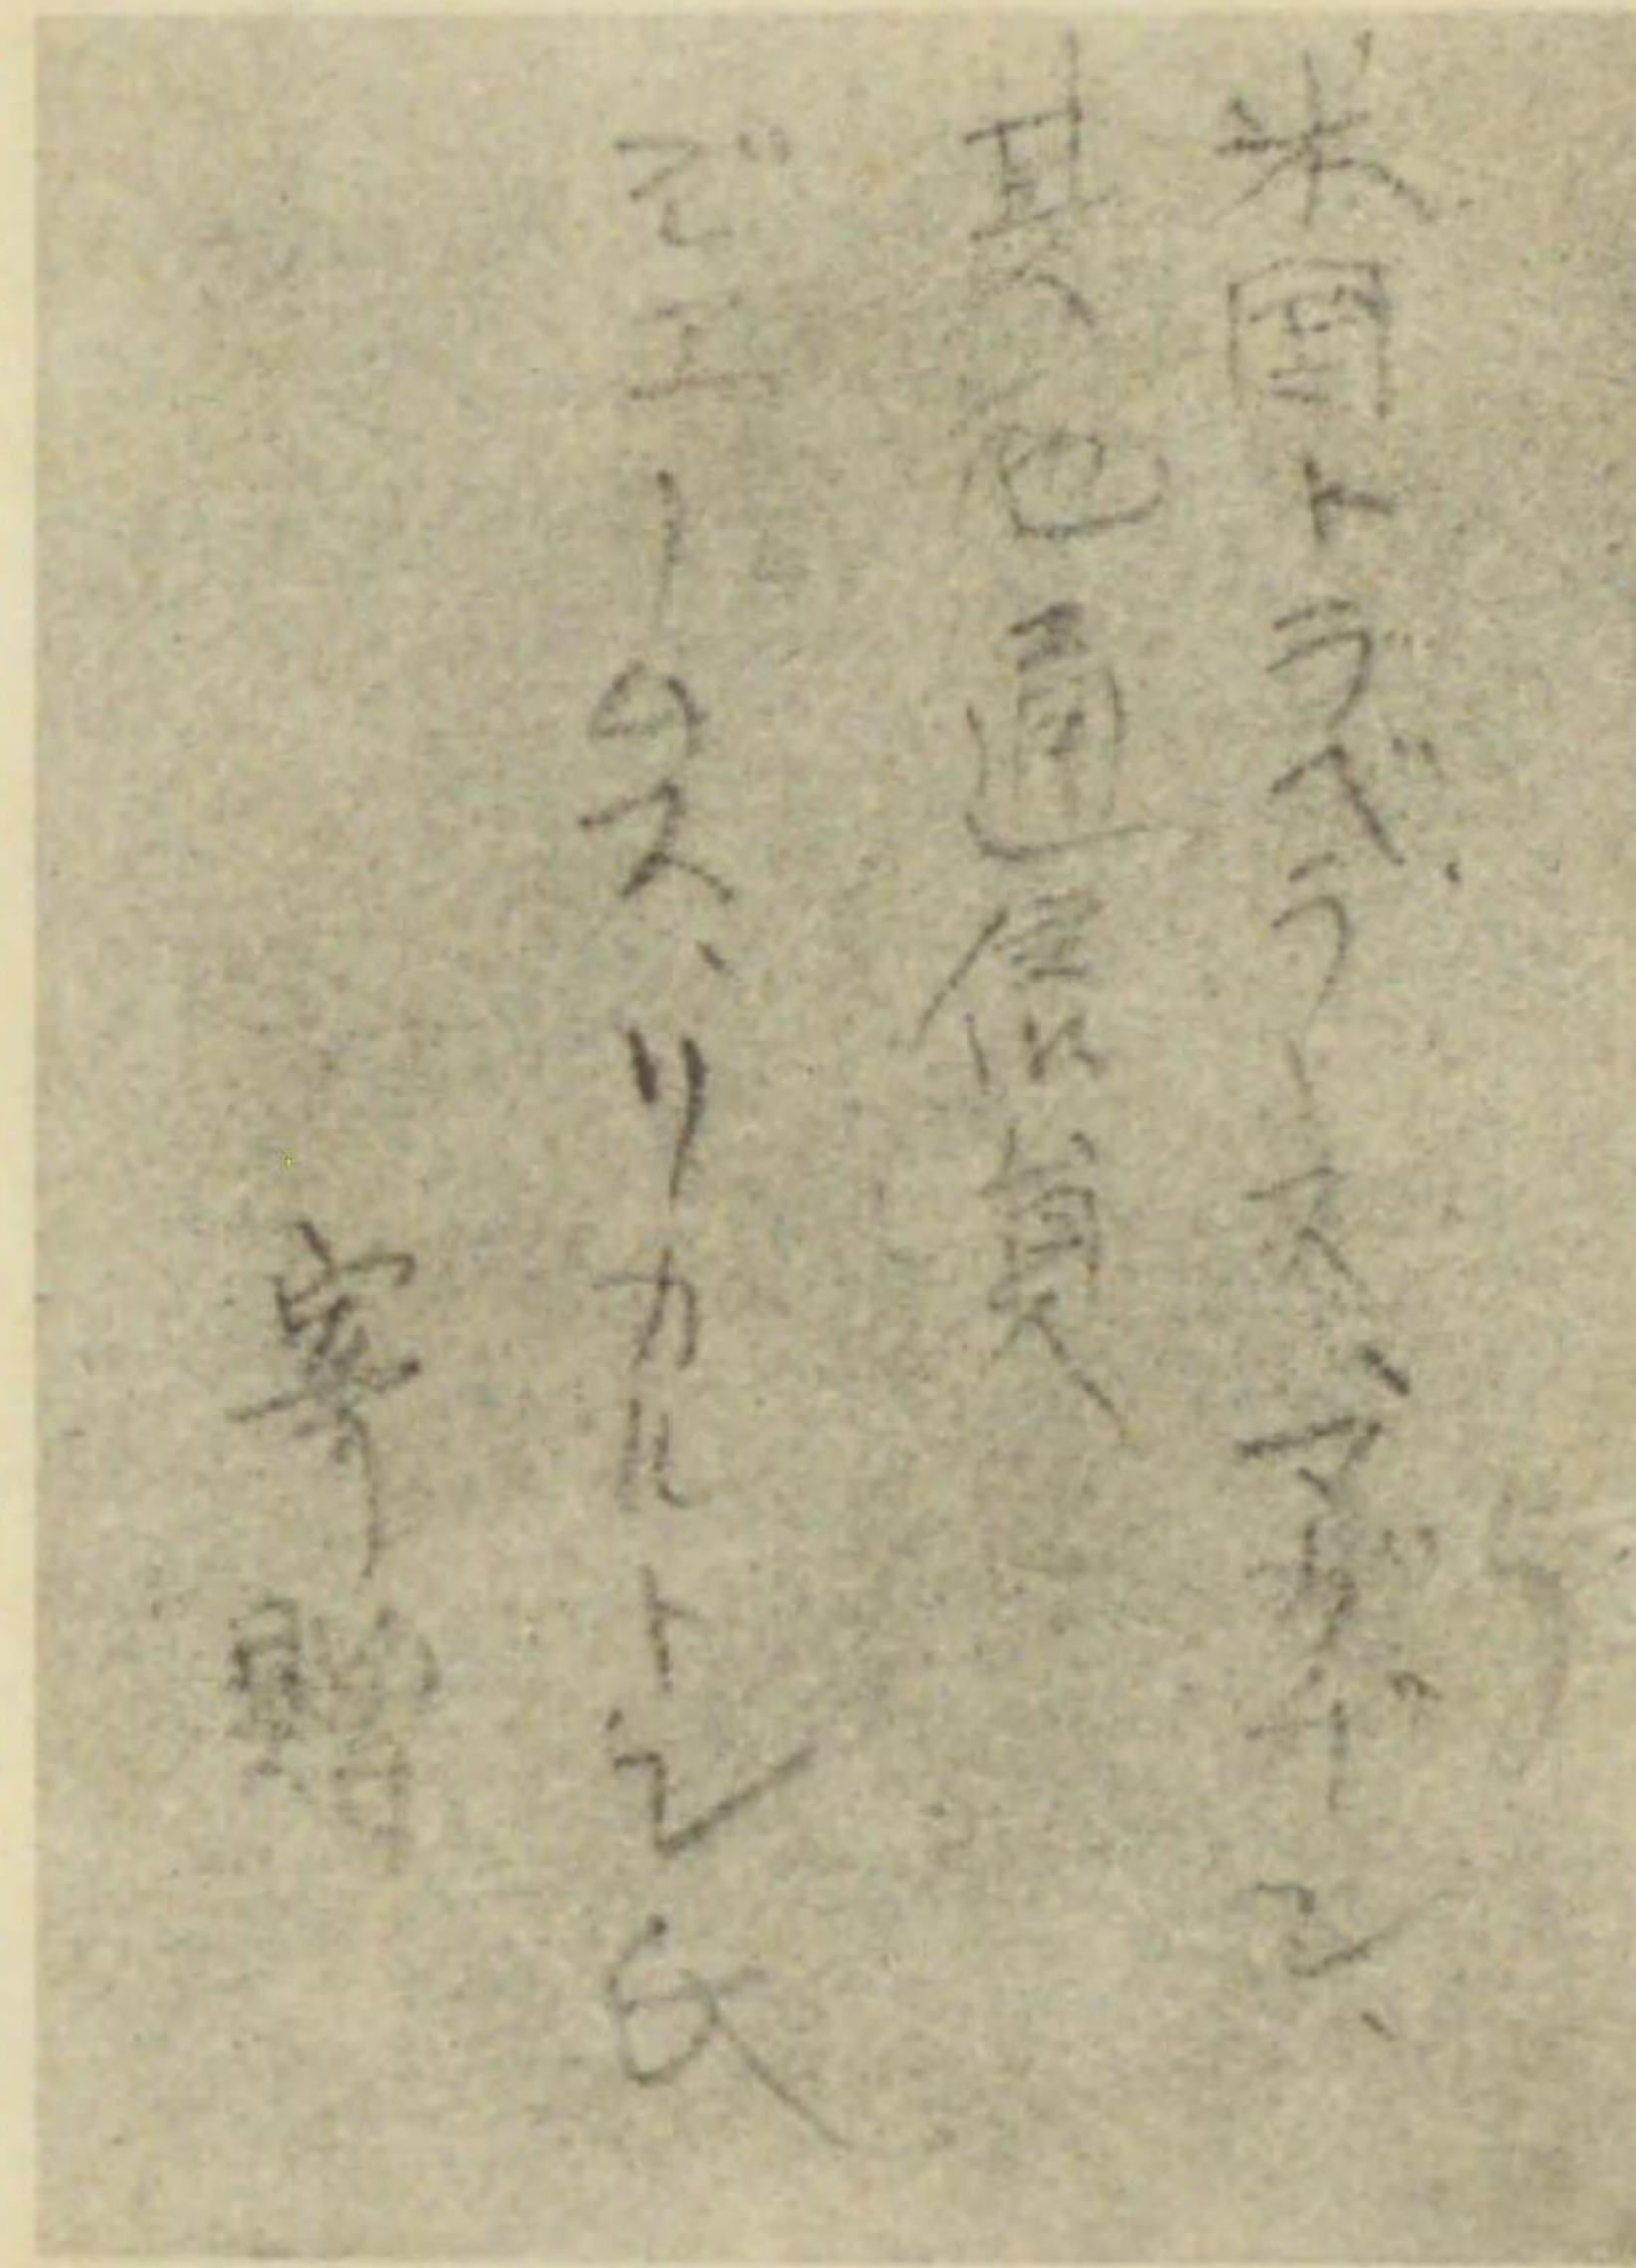 米国トラベラース、マガヂン、
其他通信員
ゼエームス、リカルトン氏
寄贈